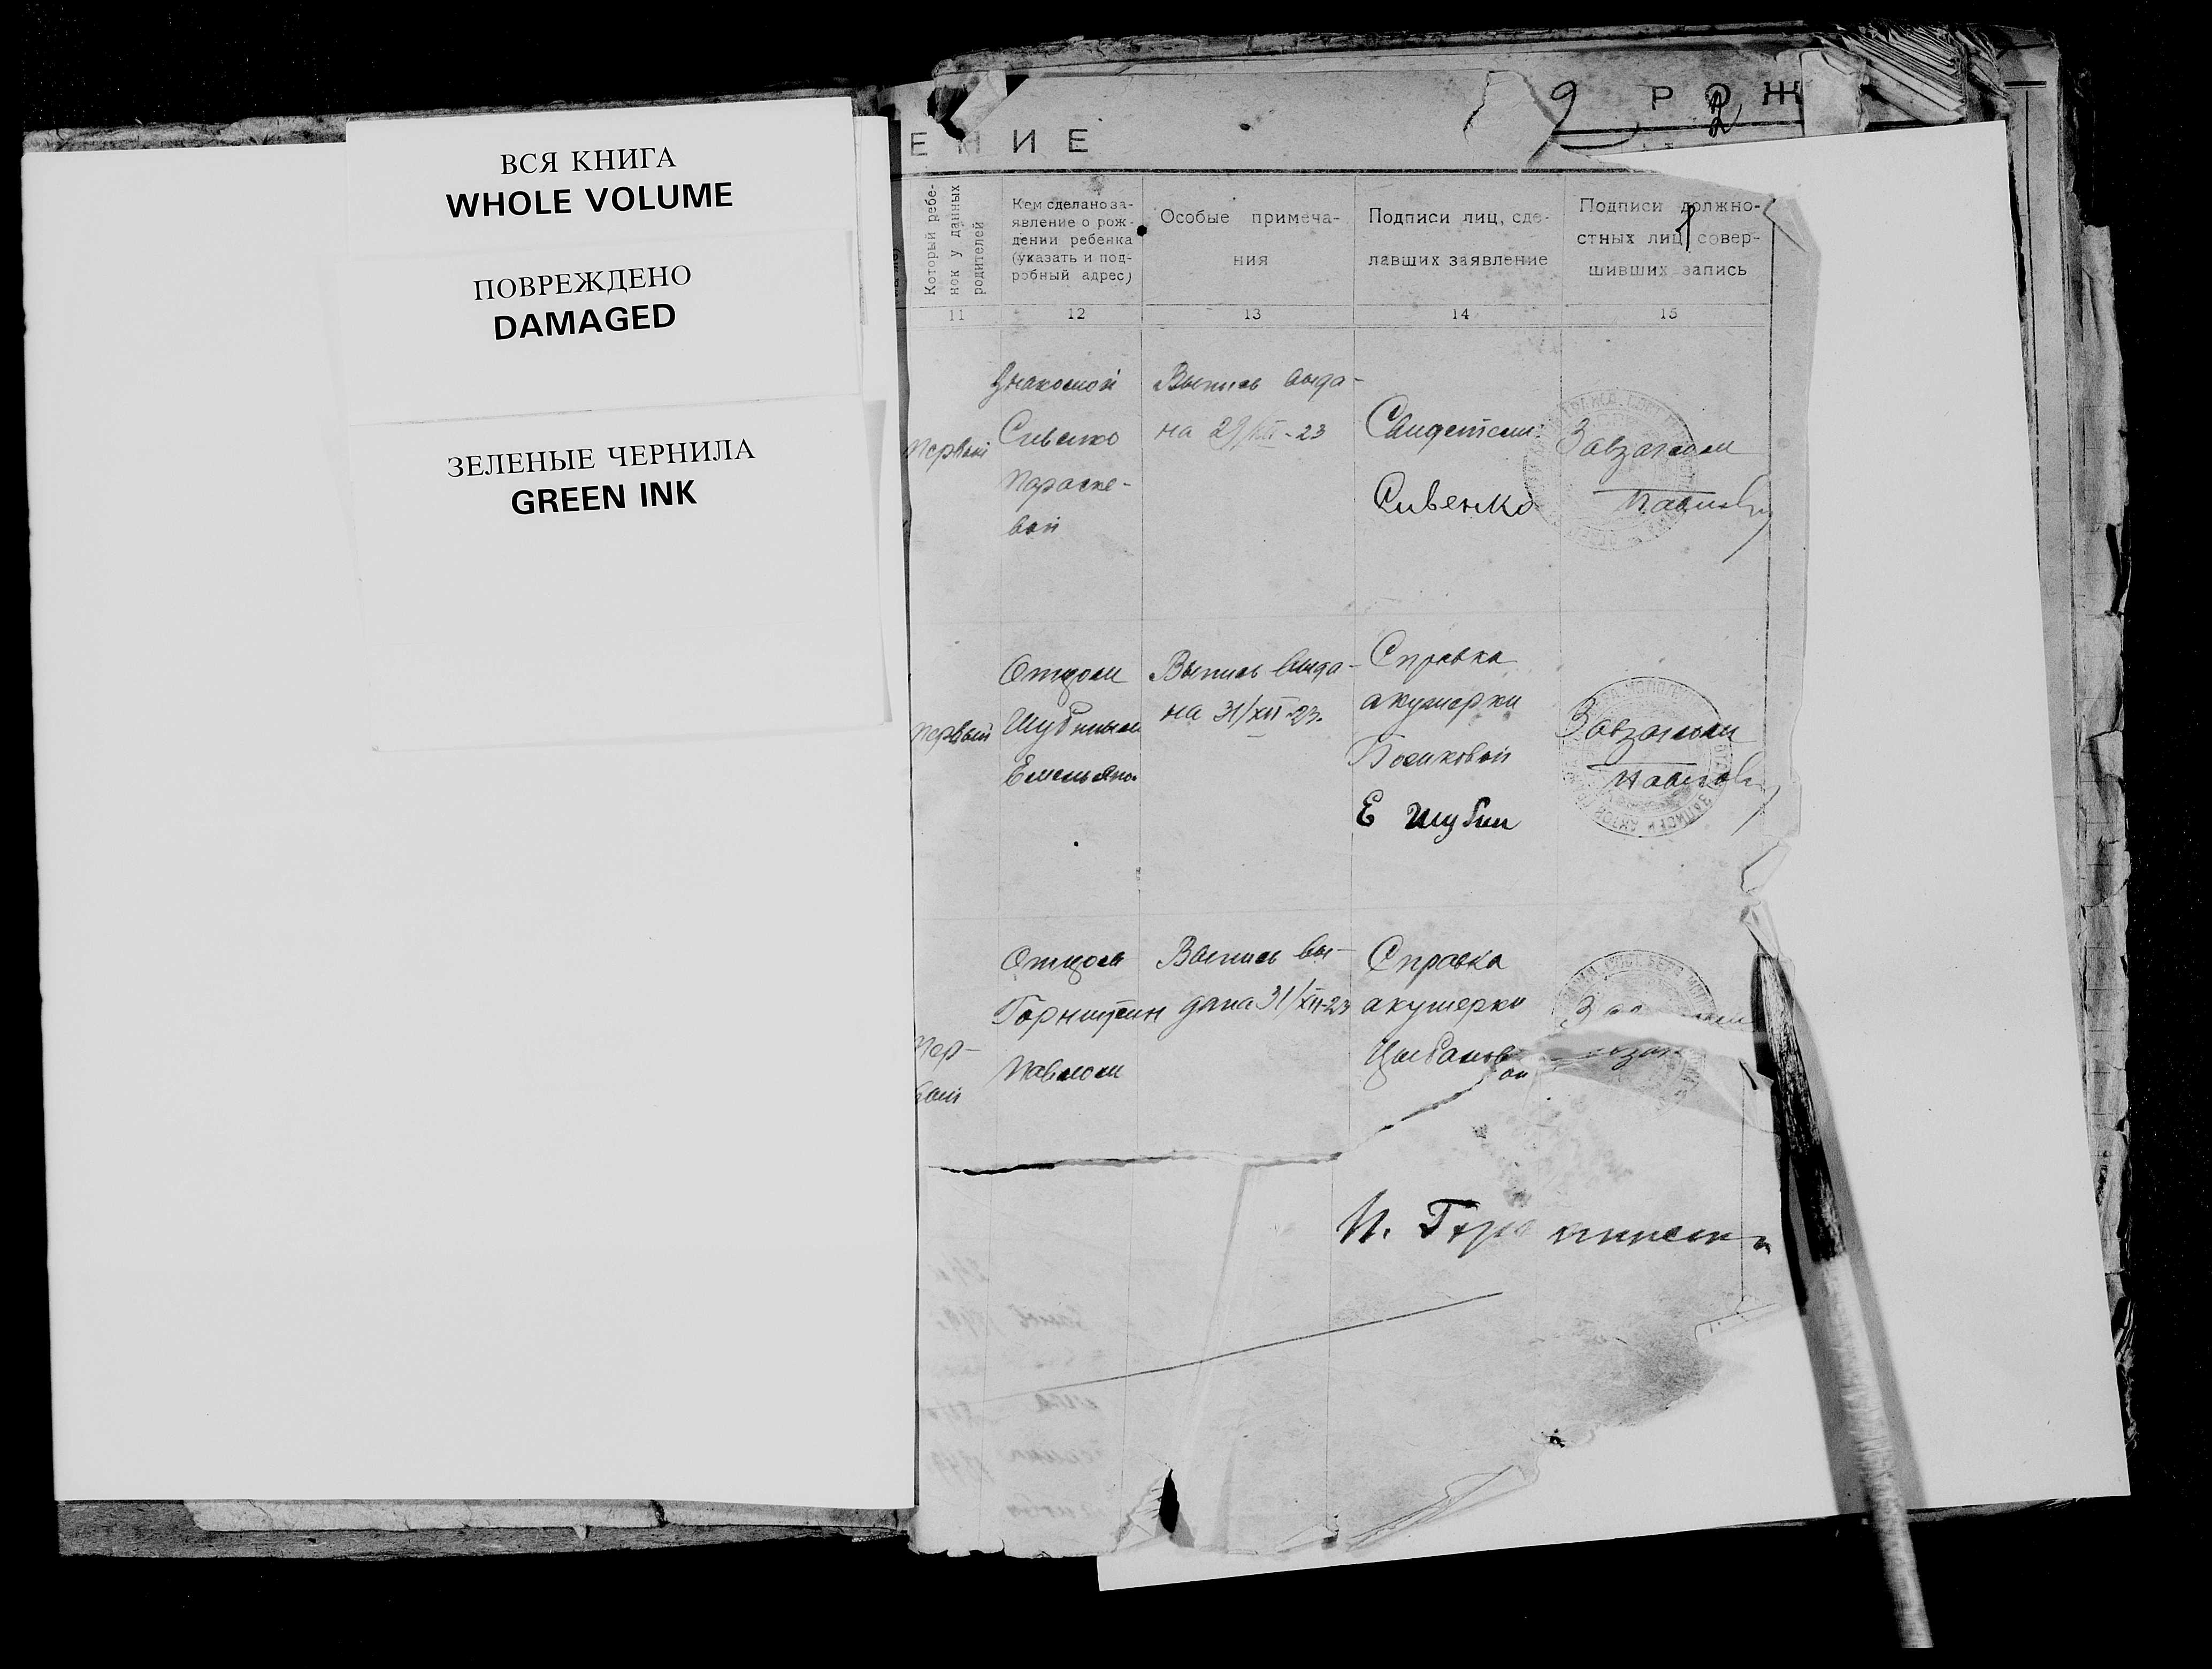 ВСЯ КНИГА
WHOLE VOLUME
ПОВРЕЖДЕНО
DAMAGED
ЗЕЛЕНЫЕ ЧЕРНИЛА
GREEN INK
9 РОЖ
2
ЕНИЕ
Который ребе-
нок у данных
родителей
Кем сделано за-
явление о рож-
дении ребенка
(указать и под-
робный адрес)
Особые примеча-
ния
Подписи лиц, сде-
лавших заявление
Подписи должно-
стных лиц, совер-
шивших запись
11
12
13
14
15
Первый
Знакомой
Сивенко
Параске-
вой
Выпись выда-
на 29/XII-23
Свидетели
Сивенко
Завзагсом
Первый
Отцом
Шубиным
Емельяно
Выпись выда-
на 31/XII-23.
Справка
акушерки
Е Шубин
Завзагсом
Пер-
вый
Отцом
Павлом
Выпись вы-
дана 31/XII-23
Справка
акушерки
П.